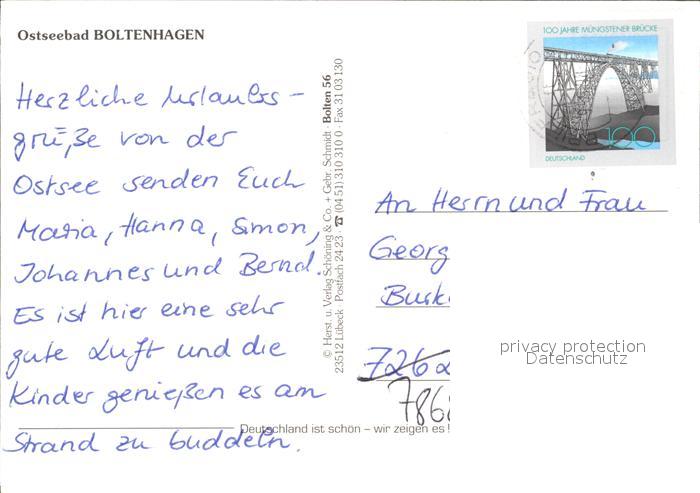 Ostseebad BOLTENHAGEN
Herzliche Urlaubs-
grüße von der
Ostsee senden Euch
Maria, Hanna, Simon,
Johannes und Bernd.
Es ist hier eine sehr
gute Luft und die
Kinder genießen es am
Strand zu buddeln.
© Herst. u. Verlag Schöning & Co. + Gebr. Schmidt · Bolten 56
23512 Lübeck · Postfach 24 23 · ☎ (04 51) 310 310 0 · Fax 31 03 130
Deutschland ist schön – wir zeigen es!
100 JAHRE MÜNGSTENER BRÜCKE
100
DEUTSCHLAND
An Herrn und Frau
Georg
Busk
7262
786
privacy protection
Datenschutz